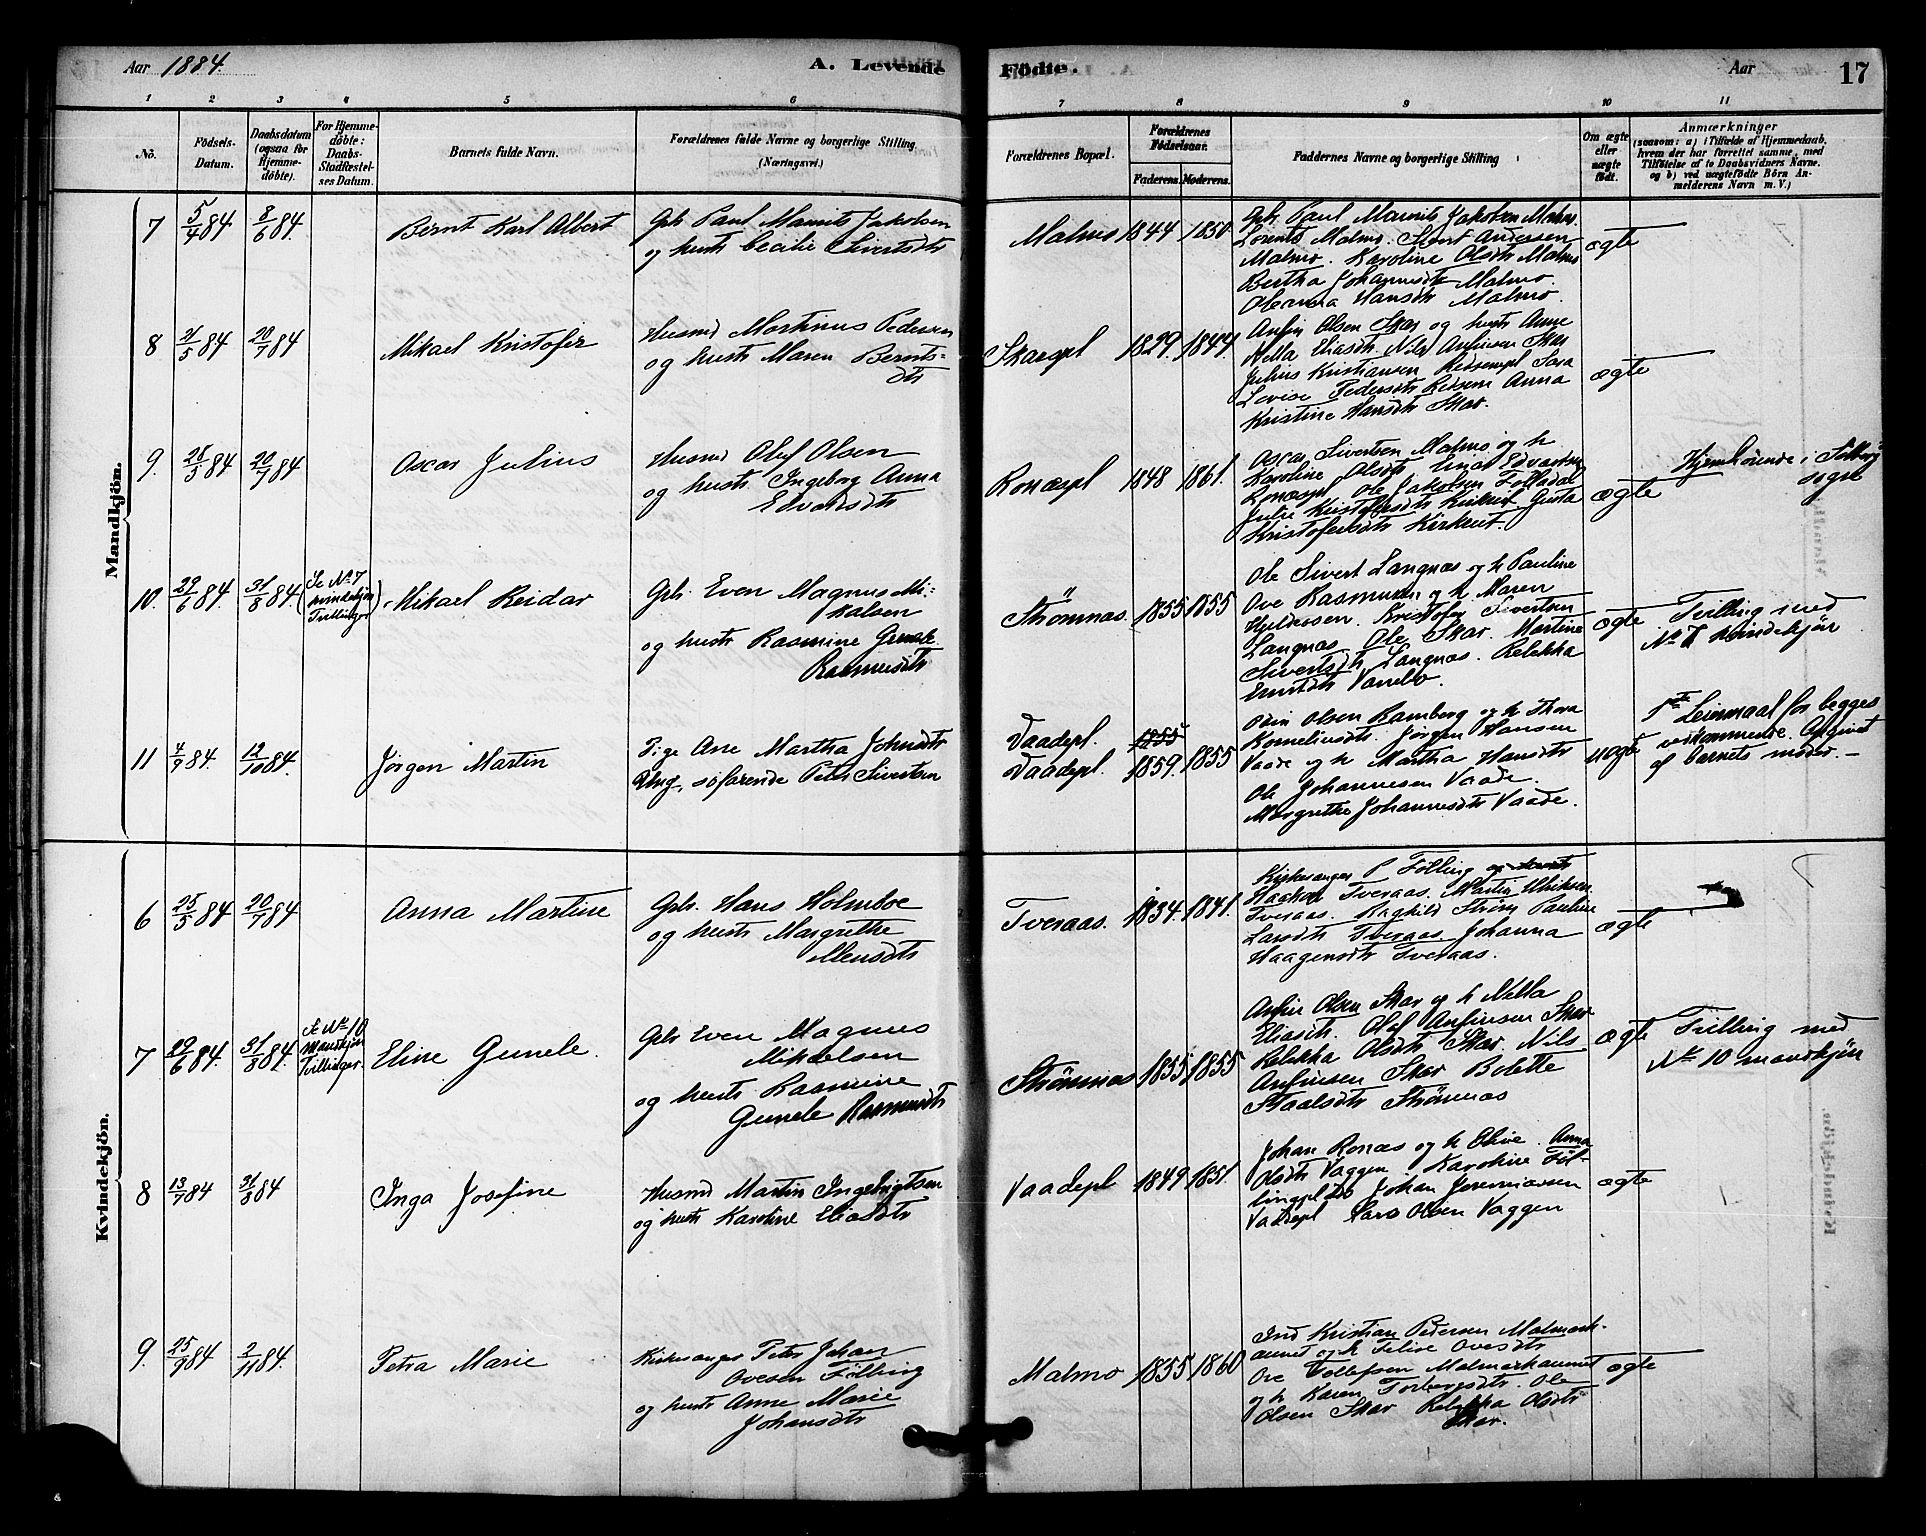 Aar 1884.
A. Levende
Födte.
Aar
17
1 2 3 4 5 6 7 8 9 10 11
No.
Födsels-
Datum.
Daabsdatum
(ogsaa for
Hjemme-
döbte).
For Hjemme-
döbte:
Daabs-
Stadfæstel-
ses Datum.
Barnets fulde Navn.
Forældrenes fulde Navne og borgerlige Stilling
(Næringsvei.)
Forældrenes Bopæl.
Forældrenes
Födselsaar.
Faderens. Moderens.
Faddernes Navne og borgerlige Stilling
Om ægte
eller
uægte
födt.
Anmærkninger
(saasom: a) i Tilfælde af Hjemmedaab,
hvem der har forrettet samme, med
Tilföielse af to Daabsvidners Navne.
og b) ved uægtefödte Börn An-
melderens Navn m. V.)
Mandkjön.
7
5/4 84
8/6 84.
Bernt Karl Albert
Gbr Paul Maurits Jakobsen
og hustr Cecilie Sivertsdtr
Malmo
1844
1850
Gbr Paul Maurits Jakobsen Malmo.
Lorents Malmo. Sivert Andersen
Malmo. Karoline Olsdtr Malmo
Bertha Johannesdtr Malmo.
Oleanna Hansdtr Malmo.
ægte
8
21/5 84
20/7 84
Mikael Kristofer
Husmd Martinus Pedersen
og hustr Maren Bernts-
dtr
Skarspl
1829.
1844.
Anfin Olsen Skar og hustr Anne
Nella Eliasdtr Nils Anfinsen Skar
Julius Kristiansen Sara
Levise Pedersdtr Anna
Kristine Hansdtr Skar.
ægte
9.
28/5 84
20/7 84
Oscar Julius
Husmd Oluf Olsen
og hustr Ingeborg Anna
Edvardsdtr
Ronæspl
1848
1861.
Oscar Sivertsen Malmo og h
Karoline Olsdtr Edvardsen
Ronæspl Ole Jakobsen Folladal
Julie Kristofersdtr Gusta
Kristofersdtr
ægte
Hjemhörende i
sogn
10.
29/6 84.
31/8 84.
(Se No 7
kvindekjön
Tvillinger)
Mikael Reidar
Gbr. Even Magnus Mi-
kalsen
og hustr Rasmine Gunele
Rasmusdtr
Strömnæs.
1855
1855
Ole Sivert Langnæs og h Pauline
Ove Rasmusen og h Maren
Kristofer Sivertsen
Langnæs Ole Skar. Martine
Sivertsdtr Langnæs. Rebekka
ægte
Tvilling med
No 7 kvindekjön
11
4/9 84.
12/10 84.
Jörgen Martin
Pige Ane Martha Johnsdtr
Ung. söfarende Peter Sivertsen
Vaadepl.
Vaadepl.
1855
1859.
1855
Olsen Ramberg og h Thora
Korneliusdtr. Jörgen Hansen
Vaade og h Martha Hansdtr
Ole Johannesen Vaade.
Margrethe Johannesdtr Vaade.
uægte
1ste Leiermaal for begges
vedkommende. Opgivet
af barnets moder. —
Kvindekjön.
6
25/5 84
20/7 84
Anna Martine
Gbr. Hans Holmboe
og hustr Margrethe
Monsdtr
Tveraas.
1834.
1841.
Kirkesanger P Fölling og hustr
Haakon Tveraas. Martin Ulriksen
Tveraas. Ragnhild Pauline
Larsdtr Tveraas. Johanna
Haagensdtr Tveraas.
ægte
7
29/6 84.
31/8 84.
Se No 10
Mandkjön
Tvillinger.
Eline Gunele.
Gbr Even Magnus
Mikaelsen
og hustr Rasmine
Gunele Rasmusdtr
Strömnæs
1855
1855
Anfin Olsen Skar og h Nella
Eliasdtr. Olaf Anfinsen Skar
Rebekka Olsdtr Skar. Nils
Anfinsen Skar Bolette
Staalsdtr Strömnæs
ægte
Tvilling med
No 10 mandkjön
8
13/7 84
31/8 84
Inga Josefine
Husmd Martin Ingebrigtsen
og hustr Karoline Eliasdtr
Vaadepl
1849
1851.
Johan Ronæs og h Elive. Anna
Olsdtr Vaggen. Karoline Föl-
lingpl Johan Jeremiasen
Vaadepl Sara Olsen Vaggen
ægte
9.
25/9 84
2/11 84.
Petra Marie
Kirkesanger Peter Johan
Ovesen Fölling
og hustr Anne Marie
Johansdtr
Malmo
1855
1860
Ind Kristian Pedersen Malmark-
aunet og h Feline Ovesdtr
Ove Tollefsen Malmarkaunet
og h Karen Torbergsdtr. Ole
Olsen Skar Rebekka Olsdtr
Skar.
ægte